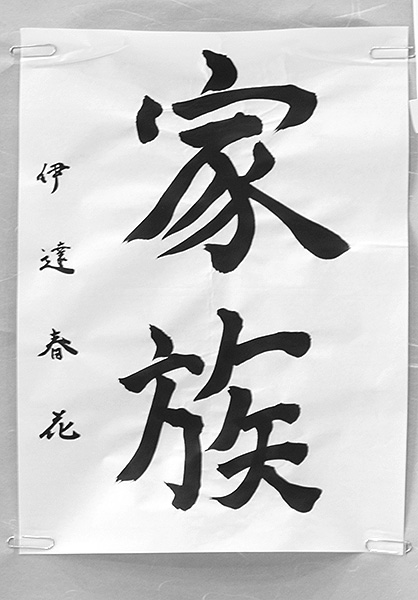 家族
伊達春花